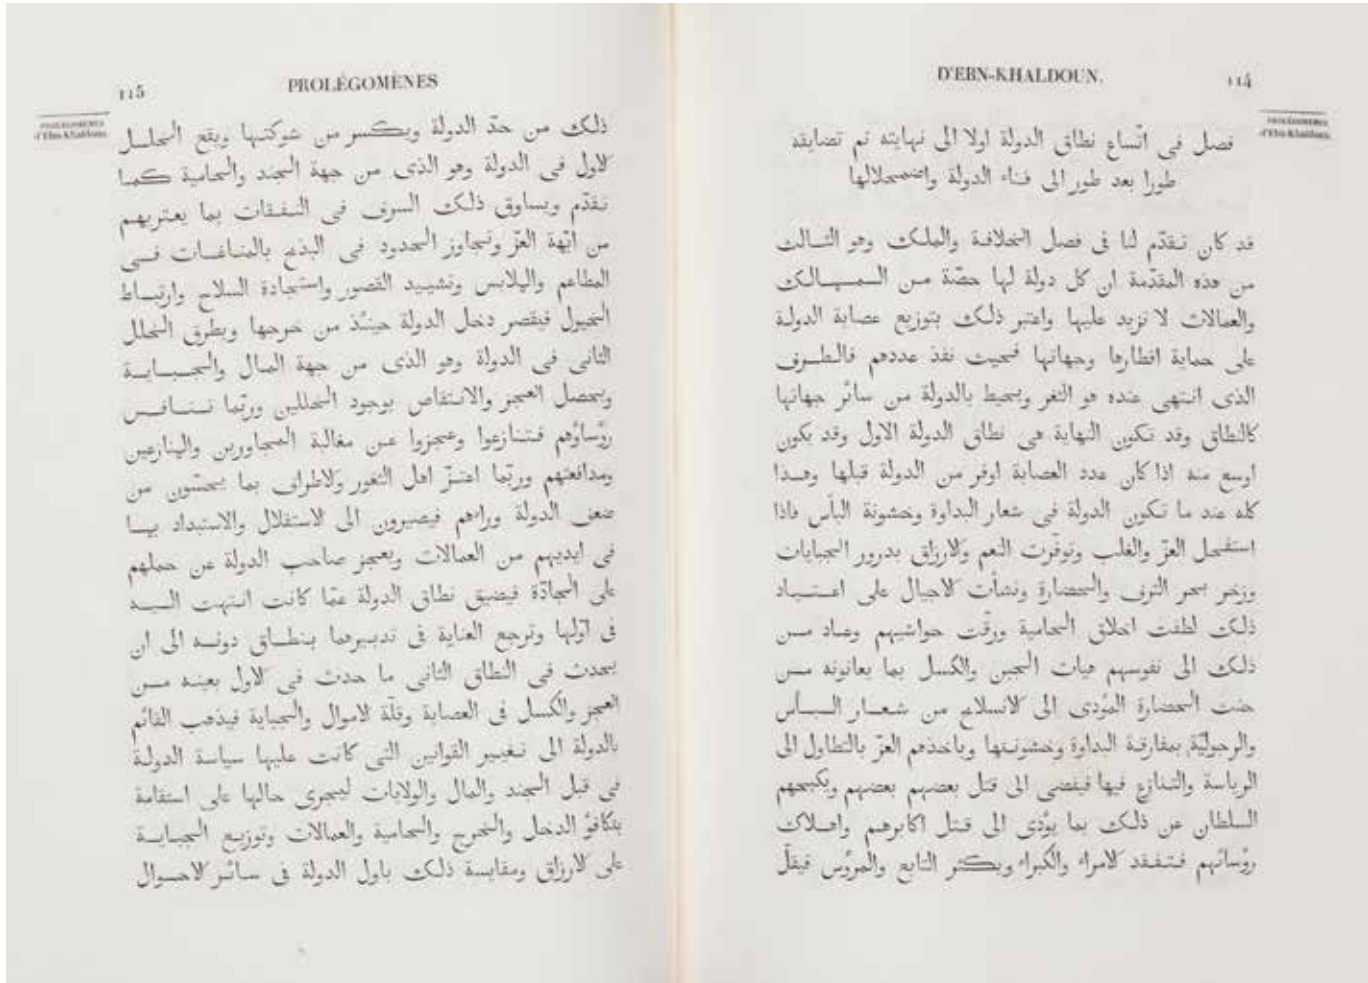 D'EBN-KHALDOUN.
114
PROLÉGOMÈNES
d'Ebn-Khaldoun.
فصل فى اتّساع نطاق الدولة اولا الى نهايته ثم تضايقه
طورا بعد طور الى فناء الدولة واضمحلالها
قد كان تقدّم لنا فى فصل الخلافة والملك وهو الثالث
من هذه المقدّمة ان كل دولة لها حصّة من الممالك
والعمالات لا تزيد عليها واعتبر ذلك بتوزيع عصابة الدولة
على حماية اقطارها وجهاتها فحيث نفد عددهم فالطرف
الذى انتهى عنده هو الثغر ويحيط بالدولة من سائر جهاتها
كالنطاق وقد تكون النهاية هى نطاق الدولة الاول وقد يكون
اوسع منه اذا كان عدد العصابة اوفر من الدولة قبلها وهذا
كله عند ما تكون الدولة فى شعار البداوة وخشونة البأس فاذا
استفحل العزّ والغلب وتوفّرت النعم والارزاق بدرور الجبايات
وزخر بحر الترف والحضارة ونشأت الاجيال على اعتياد
ذلك لطفت اخلاق الحامية ورقّت حواشيهم وعاد من
ذلك الى نفوسهم هيات الجبن والكسل بما يعانونه من
خنث الحضارة المؤدى الى الانسلاخ من شعار البأس
والرجوليّة بمفارقة البداوة وخشونتها وباخذهم العزّ بالتطاول الى
الرياسة والتنازع فيها فيفضى الى قتل بعضهم بعضهم ويكبحهم
السلطان عن ذلك بما يؤدى الى قتل اكابرهم واهلاك
رؤسائهم فتفقد الامراء والكبراء ويكثر التابع والمرؤس فيقلّ
115
PROLÉGOMÈNES
PROLÉGOMÈNES
d'Ebn-Khaldoun.
ذلك من حدّ الدولة ويكسر من شوكتها ويقع الخلل
الاول فى الدولة وهو الذى من جهة الجند والحامية كما
تقدّم ويساوق ذلك السرف فى النفقات بما يعتريهم
من ابّهة العزّ وتجاوز الحدود فى البذخ بالمناغات فى
المطاعم والملابس وتشييد القصور واستجادة السلاح وارتباط
الخيول فيقصر دخل الدولة حينئذ من خرجها ويطرق الخلل
الثانى فى الدولة وهو الذى من جهة المال والجباية
ويحصل العجز والانتقاص بوجود الخللين وربّما تنافس
رؤساؤهم فتنازعوا وعجزوا عن مغالبة المجاورين والمنازعين
ومدافعتهم وربّما اعتزّ اهل الثغور والاطراف بما يحسّون من
ضعف الدولة وراءهم فيصيرون الى الاستقلال والاستبداد بما
فى ايديهم من العمالات ويعجز صاحب الدولة عن حملهم
على الجادّة فيضيق نطاق الدولة عمّا كانت انتهت اليه
فى اوّلها وترجع العناية فى تدبيرها بنطاق دونه الى ان
يحدث فى النطاق الثانى ما حدث فى الاول بعينه من
العجز والكسل فى العصابة وقلّة الاموال والجباية فيذهب القائم
بالدولة الى تغيير القوانين التى كانت عليها سياسة الدولة
فى قبل الجند والمال والولايات ليجرى حالها على استقامة
بتكافؤ الدخل والخرج والحامية والعمالات وتوزيع الجباية
على الارزاق ومقايسة ذلك باول الدولة فى سائر الاحوال